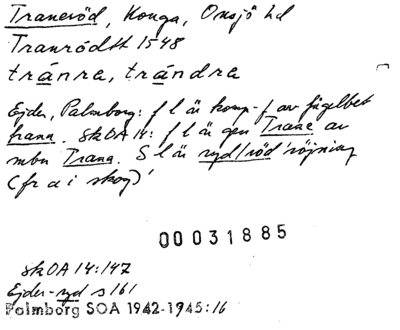 Traneröd, Konga, Onsjö hd
Tranrödtt 1548
tránra, trándra
Ejder, Palmborg: f l är komp-f av fågelbet
trana. SkOA 14: f l är gen Trane av
mbn Trana. S l är ryd/röd 'röjning
(fr a i skog)'
00031885
SkOA 14:147
Ejder-ryd s 161
Palmborg SOA 1942-1945:16